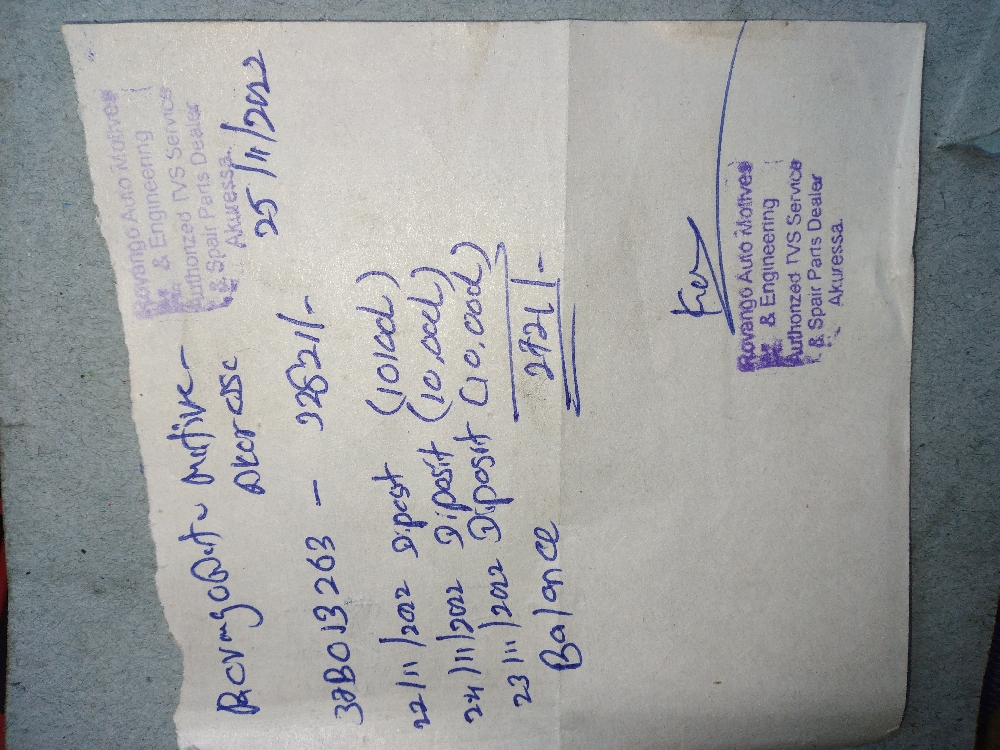 Rovango Auto Motives
& Engineering
Authorized TVS Service
& Spair Parts Dealer
Akuressa.
25/11/2022
Rovango Auto Motive
38B013263 -
22/11/2022 Dipost (10100/)
24/11/2022 Diposit (10,000/)
23/11/2022 Diposit (10,000/)
Balance 2721/-
Rovango Auto Motives
& Engineering
Authorized TVS Service
& Spair Parts Dealer
Akuressa.